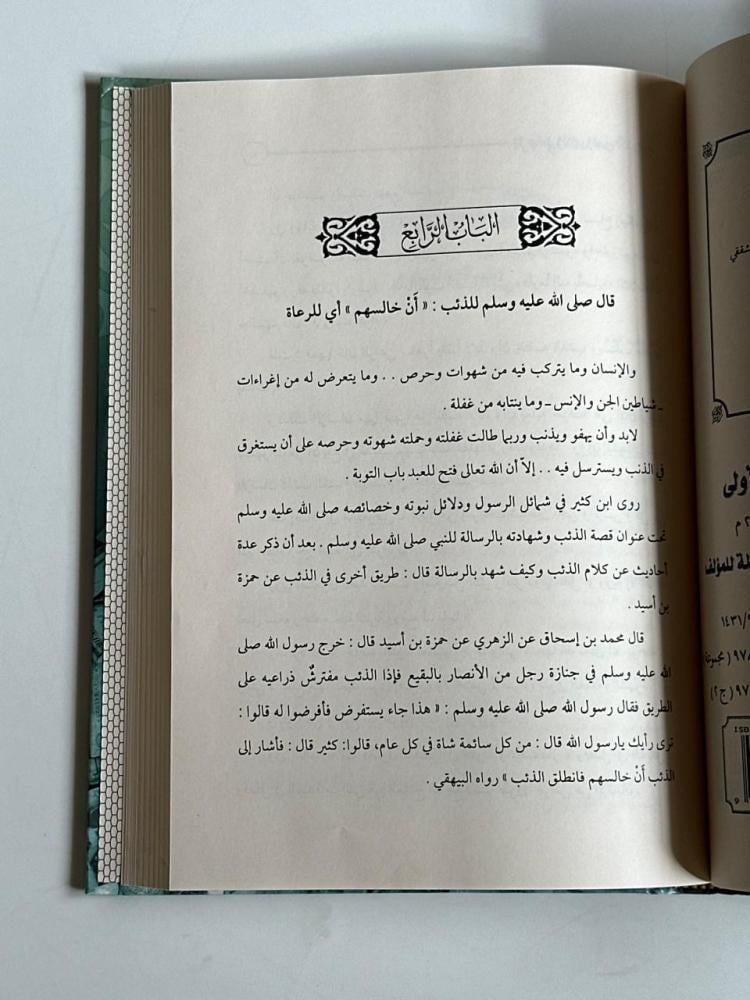 الباب الرابع
قال صلى الله عليه وسلم للذئب : « أَنْ خالسهم » أي للرعاة
والإنسان وما يتركب فيه من شهوات وحرص . . وما يتعرض له من إغراءات
ـ شياطين الجن والإنس ـ وما ينتابه من غفلة .
لابد وأن يهفو ويذنب وربما طالت غفلته وحملته شهوته وحرصه على أن يستغرق
في الذنب ويسترسل فيه . . إلاّ أن الله تعالى فتح للعبد باب التوبة .
روى ابن كثير في شمائل الرسول ودلائل نبوته وخصائصه صلى الله عليه وسلم
تحت عنوان قصة الذئب وشهادته بالرسالة للنبي صلى الله عليه وسلم . بعد أن ذكر عدة
أحاديث عن كلام الذئب وكيف شهد بالرسالة قال : طريق أخرى في الذئب عن حمزة
بن أسيد .
قال محمد بن إسحاق عن الزهري عن حمزة بن أسيد قال : خرج رسول الله صلى
الله عليه وسلم في جنازة رجل من الأنصار بالبقيع فإذا الذئب مفترشٌ ذراعيه على
الطريق فقال رسول الله صلى الله عليه وسلم : « هذا جاء يستفرض فأفرضوا له قالوا :
نرى رأيك يارسول الله قال : من كل سائمة شاة في كل عام، قالوا: كثير قال : فأشار إلى
الذئب أَنْ خالسهم فانطلق الذئب » رواه البيهقي .
شققي
لة للمؤلف
١٤٣١/٩
(ج٢)